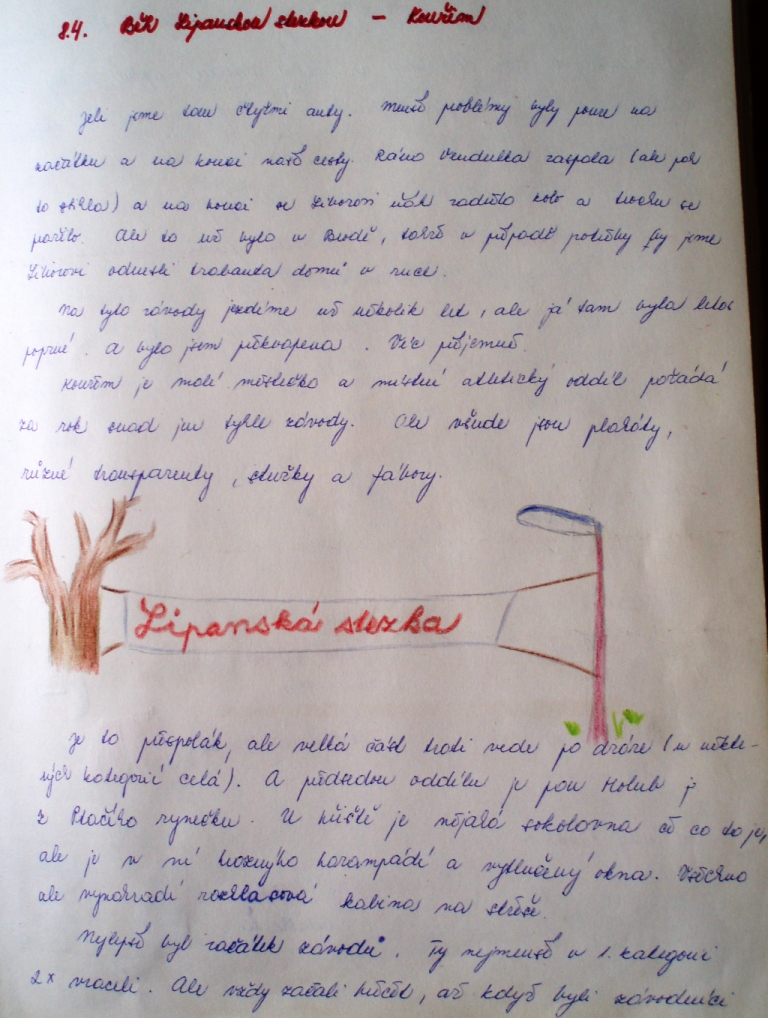 8.4. Běh Lipanskou stezkou - Kouřim
Jeli jsme tam čtyřmi auty. Menší problémy byly pouze na
začátku a na konci naší cesty. Ráno Vendulka zaspala (ale pak
to stihla) a na konci se Liborovi nějak zadřelo kolo a trochu se
pařilo. Ale to už bylo v Brodě, takže v případě potřeby by jsme
Liborovi odnesli trabanta domů v ruce.
Na tyto závody jezdíme už několik let, ale já tam byla letos
poprvé. A byla jsem překvapena. Víc příjemně.
Kouřim je malé městečko a místní atletický oddíl pořádá
za rok snad jen tyhle závody. Ale všude jsou plakáty,
různé transparenty, stužky a fábory.
Lipanská stezka
Je to přespolák, ale velká část trati vede po dráze (v někte-
rých kategorií celá). A předsedou oddílu je pan Holub
z Ptačího rynečku. U hřiště je nějaká sokolovna či co to je,
ale je v ní hroznýho harampádí a vytlučený okna. Všechno
ale vynahradí rozhlasová kabina na střeše.
Nejlepší byl začátek závodů. Ty nejmenší v 1. kategorii
2x vraceli. Ale vždy začali křičet, až když byli závodníci